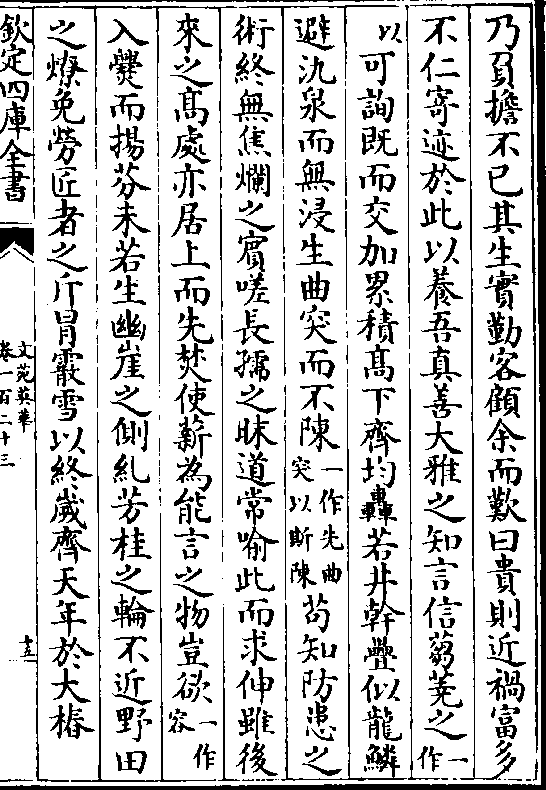 乃負擔不已其生實勤客顧余而歎曰貴則近禍富多
不仁寄迹於此以養吾真善大雅之知言信蒭蕘之一作
以可詢既而交加累積高下齊均轟若井幹疊似龍鱗
避氿泉而無浸生曲突而不陳一作先曲突以斯陳苟知防患之
術終無焦爛之賓嗟長孺之昧道常喻此而求伸雖後
來之高處亦居上而先焚使薪為能言之物豈欲一作容
入爨而揚芬未若生幽崖之側糺芳桂之輪不近野田
之燎免勞匠者之斤冒霰雪以終歲齊天年於大椿
欽定四庫全書
文苑英華
卷一百二十三
十三